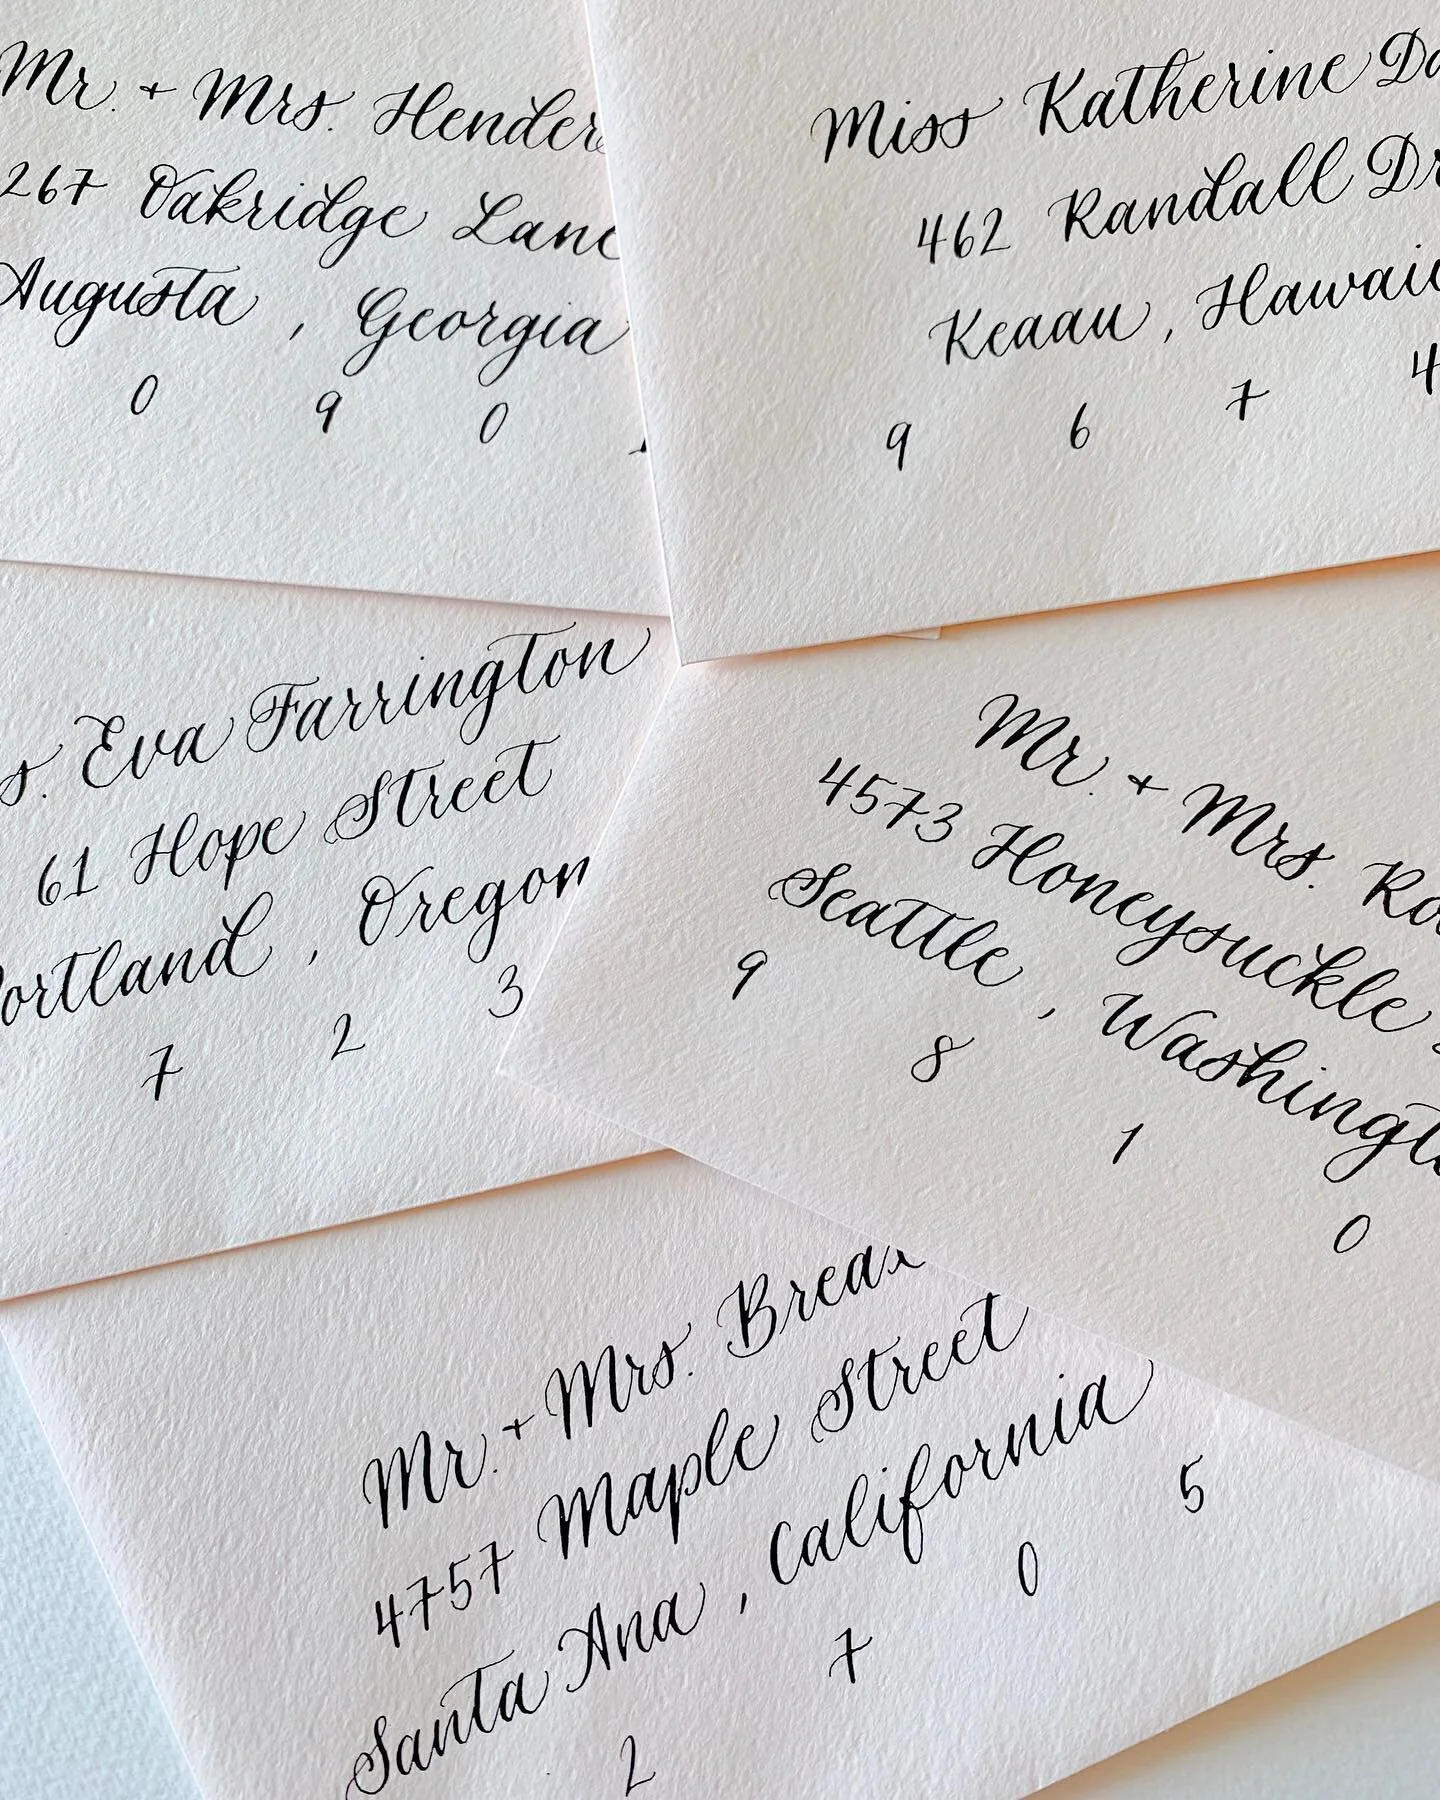 Mr. + Mrs.
267 Oakridge Lane
Augusta, Georgia
0 9 0
Miss Katherine
462 Randall
Keaau, Hawaii
9 6 7 4
Eva Farrington
61 Hope Street
Portland, Oregon
7 2 3
Mr. + Mrs.
4573 Honeysuckle
Seattle, Washington
9 8 1 0
Mr. + Mrs.
4757 Maple Street
Santa Ana, California
2 7 0 5